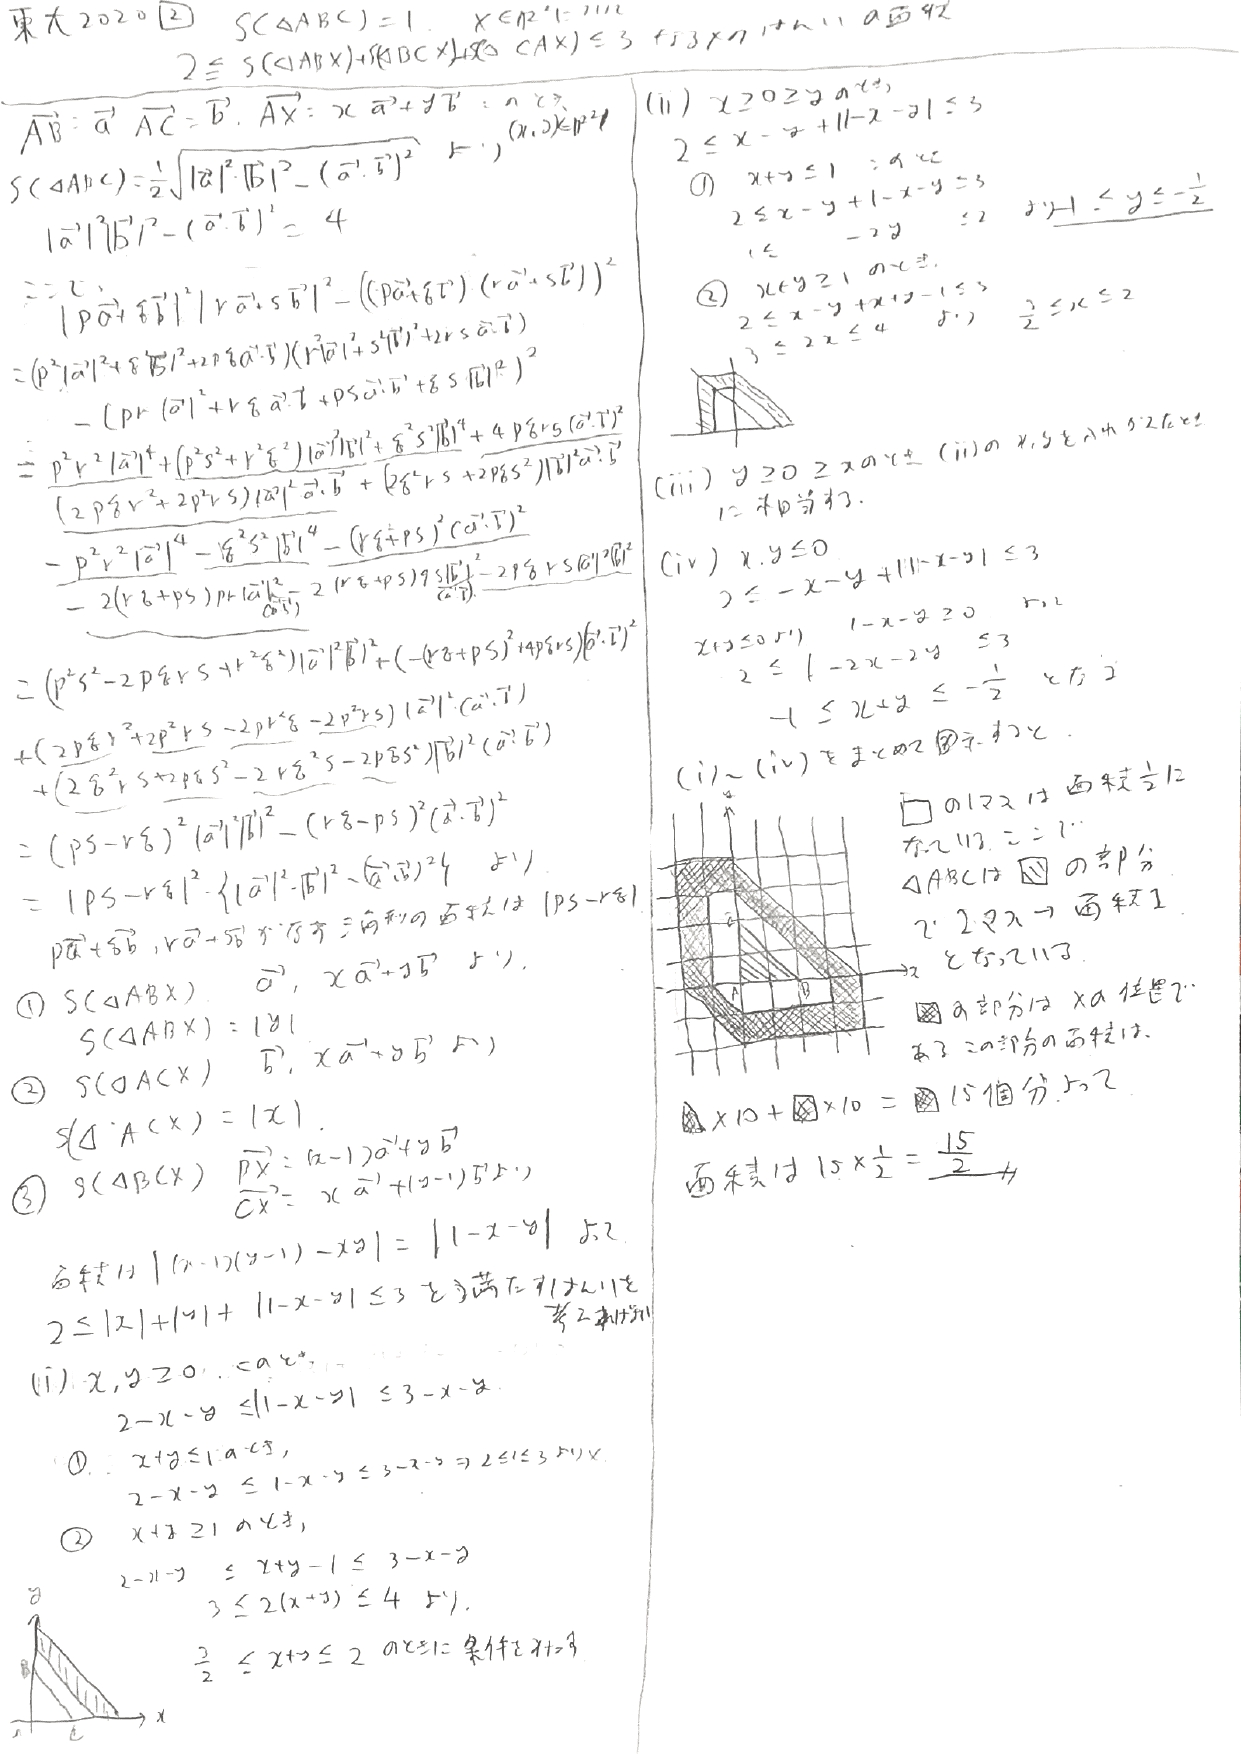 東大2020 [2] S(△ABC)=1.
2 ≦ S(△ABX)+S(△BCX)+S(△CAX) ≤ 3 の面積
AB=a AC=b. AX= x a + y b
S(△ABC)=1/2√|a|²・|b|²-(a・b)² より
|a|²|b|²-(a・b)² = 4
|pa+qb|²|ra+sb|²-((pa+qb)・(ra+sb))²
=(p²|a|²+q²|b|²+2pq a・b)(r²|a|²+s²|b|²+2rs a・b)
-(pr|a|²+rq a・b+ps a・b+qs|b|²)²
= p²r²|a|⁴+(p²s²+r²q²)|a|²|b|²+q²s²|b|⁴+4pqrs(a・b)²
(2pqr²+2p²rs)|a|² a・b + (2q²rs+2pqs²)|b|² a・b
- p²r²|a|⁴ - q²s²|b|⁴ - (rq+ps)²(a・b)²
- 2(rq+ps)pr|a|²(a・b) - 2(rq+ps)qs|b|²(a・b) - 2pqrs|a|²|b|²
= (p²s²-2pqrs+r²q²)|a|²|b|²+(-(rq+ps)²+4pqrs)(a・b)²
+(2pqr²+2p²rs-2pr²q-2p²rs)|a|²(a・b)
+(2q²rs+2pqs²-2rq²s-2pqs²)|b|²(a・b)
= (ps-rq)²|a|²|b|²-(rq-ps)²(a・b)²
= |ps-rq|²・{|a|²・|b|²-(a・b)²} より
pa+qb, ra+sb が なす三角形の面積は |ps-rq|
① S(△ABX) a, xa+yb より,
S(△ABX)=|y|
② S(△ACX) b, xa+yb より
S(△ACX)=|x|.
③ S(△BCX) BX=(x-1)a+yb
CX= xa+(y-1)b より
面積は |(x-1)(y-1)-xy| = |1-x-y| よって
2≤|x|+|y|+|1-x-y|≤3 を満たすはんいを
考えればよい
(i) x,y≥0 のとき.
2-x-y ≤|1-x-y| ≤3-x-y
① x+y≤1 のとき,
2-x-y ≤ 1-x-y ≤ 3-x-y ⇒ 2≤1≤3 より×
② x+y≥1 のとき,
2-x-y ≤ x+y-1 ≤ 3-x-y
3 ≤2(x+y) ≤4 より.
3/2 ≤ x+y ≤ 2 のときに条件をみたす
y
B
A C x
(ii) x≥0≥y のとき,
2 ≤ x-y+|1-x-y| ≤3
① x+y≤1 のとき
2≤x-y+1-x-y≤3
1≤ -2y ≤2 より -1≤y≤-1/2
② x+y≥1 のとき.
2≤x-y+x+y-1≤3
3 ≤ 2x ≤4 より 3/2 ≤x≤2
(iii) y≥0≥x のとき (ii)の x,yを入れかえたとき
に相当する.
(iv) x,y≤0
2≤ -x-y+|1-x-y| ≤3
x+y≤0より 1-x-y≥0 より
2 ≤ 1-2x-2y ≤3
-1 ≤ x+y ≤ -1/2 となる
(i)~(iv)をまとめて図示すると.
y
x
C
A B
□の1マスは面積1/2に
なっている ここで
△ABCは の部分
で 2マス→面積1
となっている
の部分はXの位置で
ある この部分の面積は.
×10+ ×10 = 15個分 よって
面積は 15×1/2= 15/2